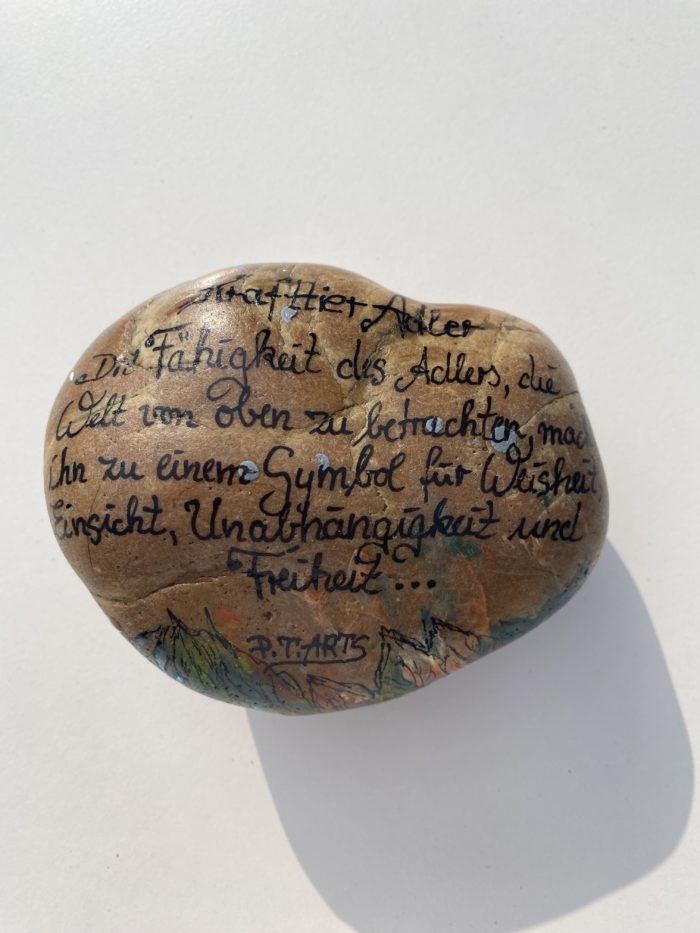 Krafttier Adler
„Die Fähigkeit des Adlers, die
Welt von oben zu betrachten, mac
ihn zu einem Symbol für Weisheit,
Einsicht, Unabhängigkeit und
Freiheit...
P.T.ARTS